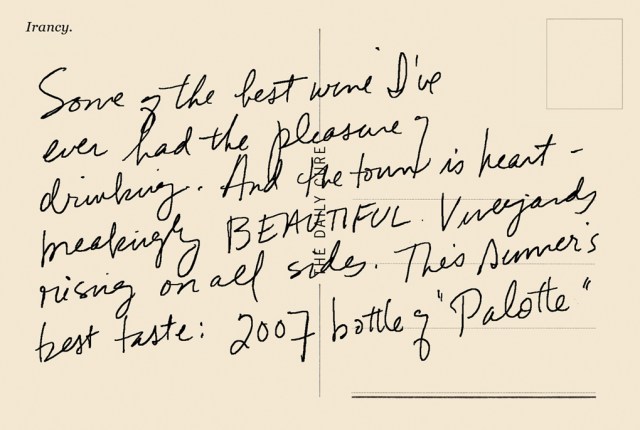 Irancy.
Some of the best wine I've
ever had the pleasure of
drinking. And the town is heart-
breakingly BEAUTIFUL. Vineyards
rising on all sides. This summer's
best taste: 2007 bottle of "Palotte"
THE DAILY CURE